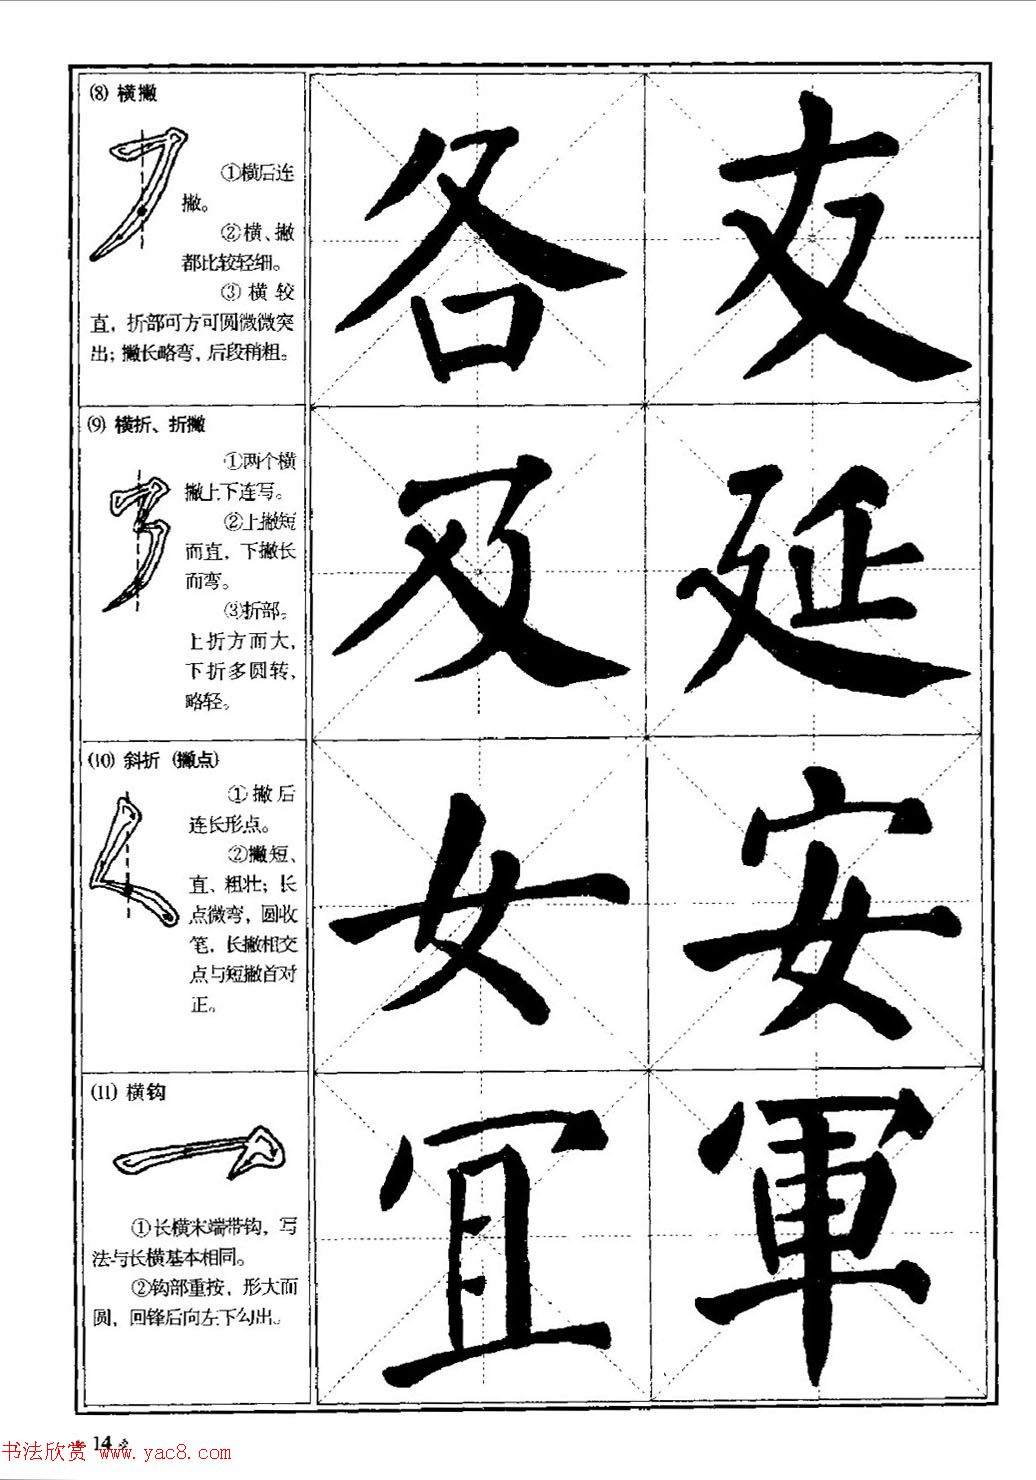 (8) 横撇
①横后连
撇。
②横、撇
都比较轻细。
③横较
直，折部可方可圆微微突
出；撇长略弯，后段稍粗。
各友
(9) 横折、折撇
①两个横
撇上下连写。
②上撇短
而直，下撇长
而弯。
③折部。
上折方而大，
下折多圆转，
略轻。
及延
(10) 斜折（撇点）
①撇后
连长形点。
②撇短、
直、粗壮；长
点微弯，圆收
笔，长撇相交
点与短撇首对
正。
女安
(11) 横钩
①长横末端带钩，写
法与长横基本相同。
②钩部重按，形大而
圆，回锋后向左下勾出。
宜軍
14
书法欣赏 www.yac8.com